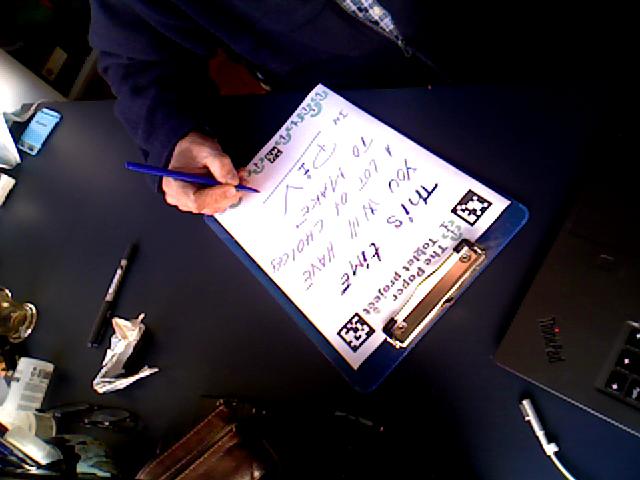 The Paper
Tablet project
This time
you will have
a lot of choices
to make
in DIV
ThinkPad